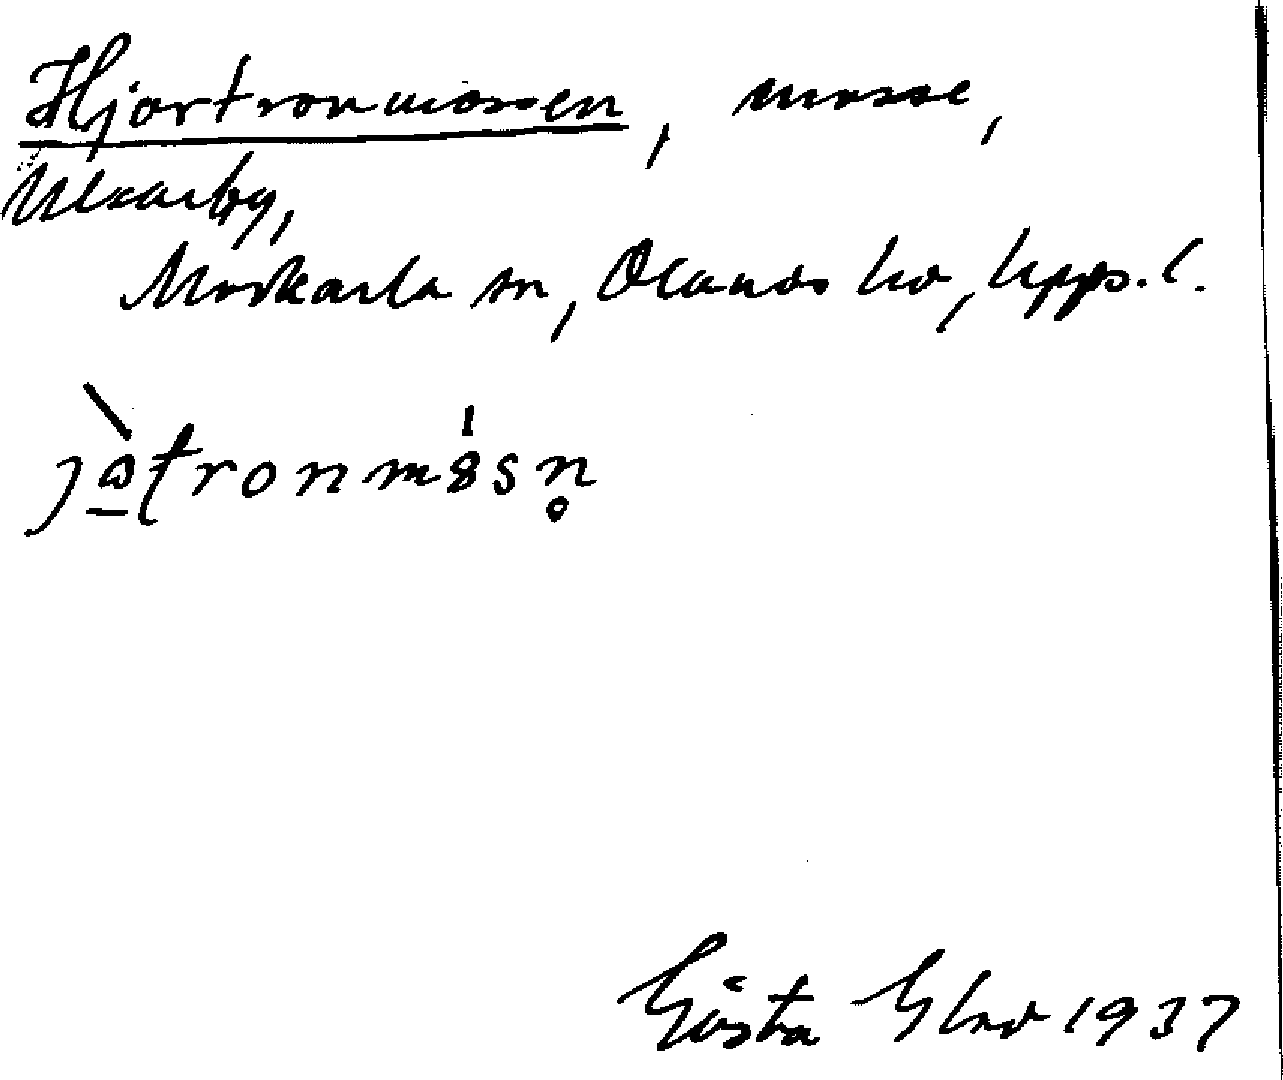 Hjortronmossen, mosse,
Ulkarby,
Morkarla sn, Olands hd, Upps. l.
jåtronmȯsn̥
Gösta Glad 1937